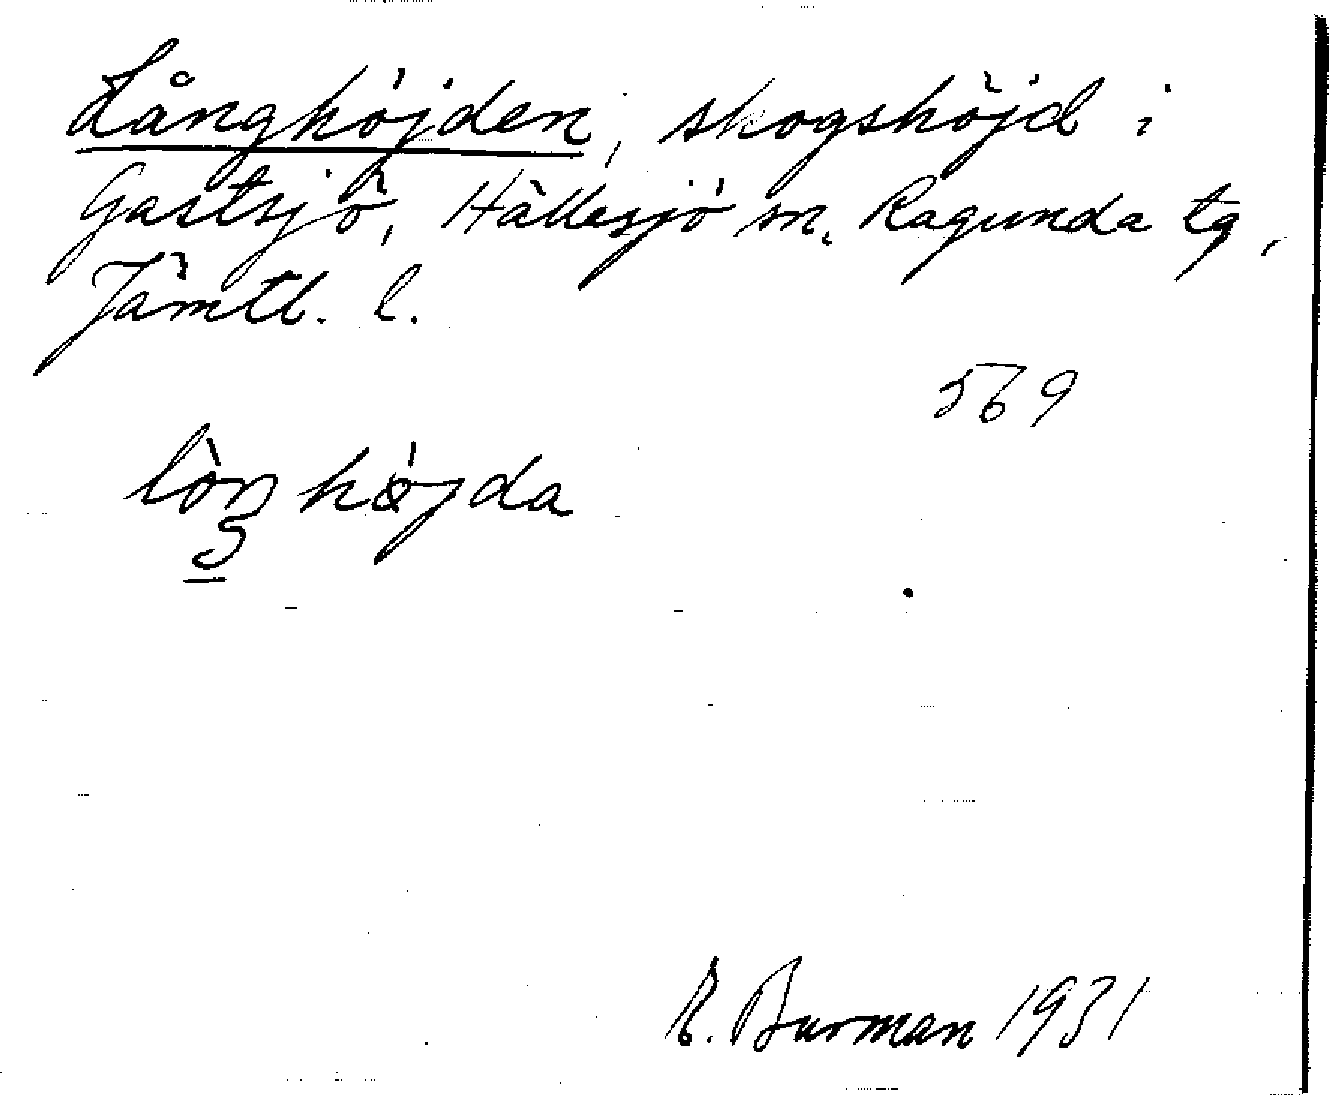 Långhöjden, skogshöjd i
Gastsjö, Hällesjö sn. Ragunda tg,
Jämtl. l.
569
lòŋhøjda
R. Burman 1931